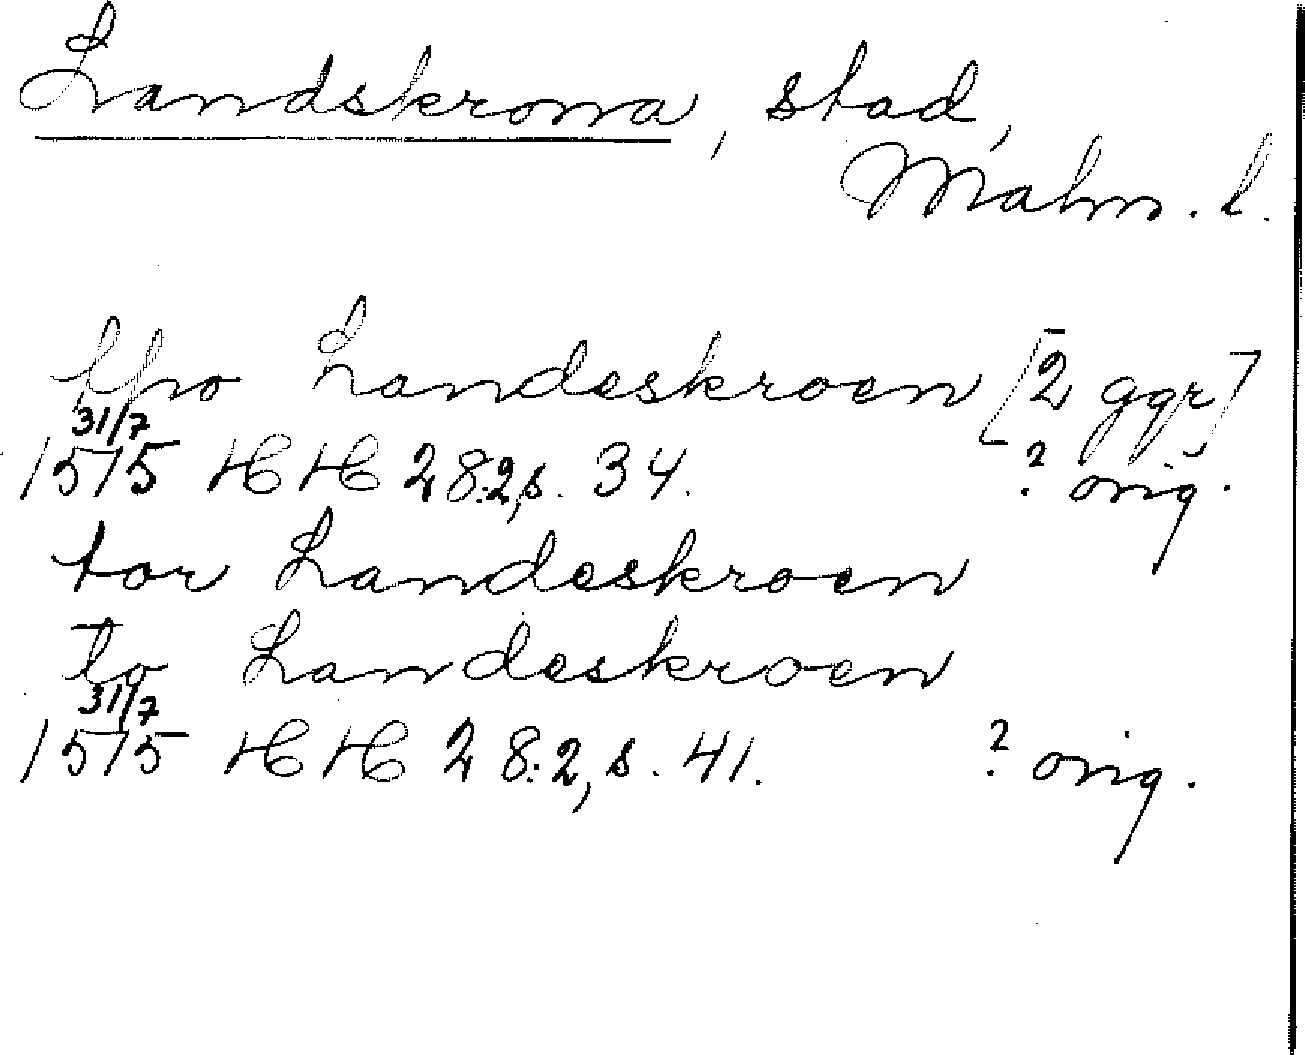 Landskrona, stad,
Malm. l.
tho Landeskroen [2 ggr]
31/7
1575 HH 28:2, s. 34. ? orig.
tor Landeskroen
To Landeskroen
31/7
1575 HH 28:2, s. 41. ? orig.